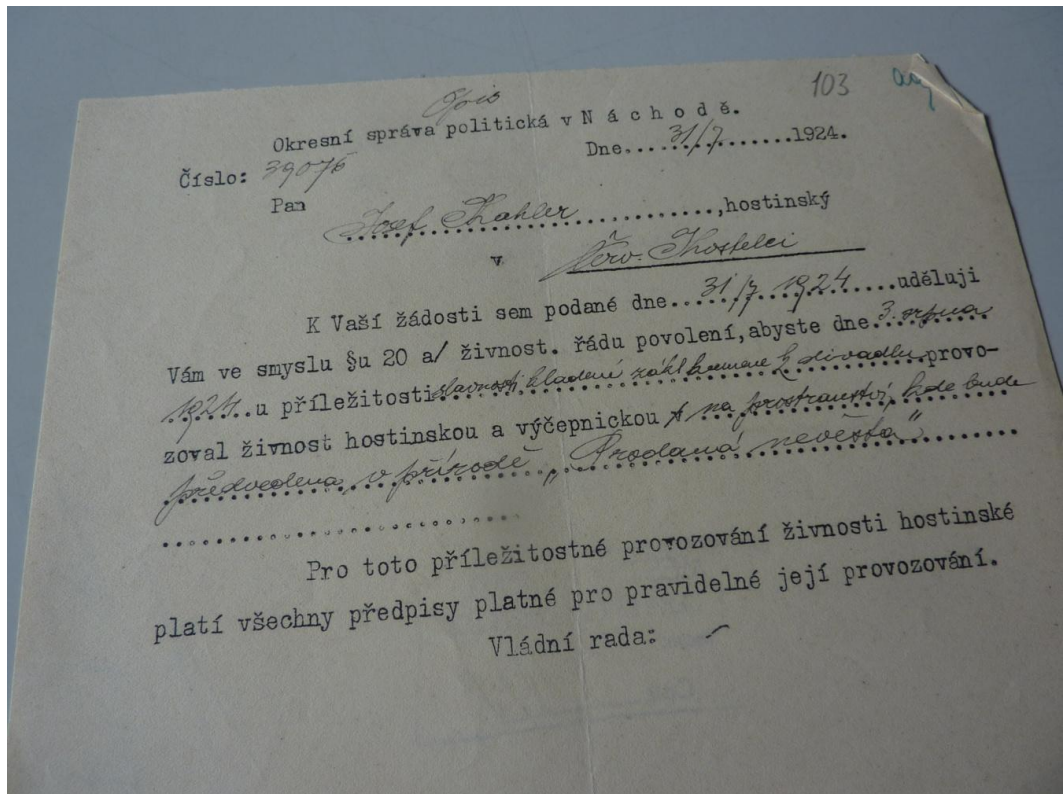 103
Opis
Okresní správa politická v N á c h o d ě.
Číslo: 39076 Dne....31/7.........1924.
Pan
Josef Kahler............,hostinský
v Červ. Kostelci
K Vaší žádosti sem podané dne...31/7 1924....uděluji
Vám ve smyslu §u 20 a/ živnost. řádu povolení,abyste dne 3. srpna
1924..u příležitosti slavnosti kladení zákl kamene k divadlu provo-
zoval živnost hostinskou a výčepnickou na prostranství, kde bude
předvedena v přírodě „Prodaná nevěsta"
Pro toto příležitostné provozování živnosti hostinské
platí všechny předpisy platné pro pravidelné její provozování.
Vládní rada: